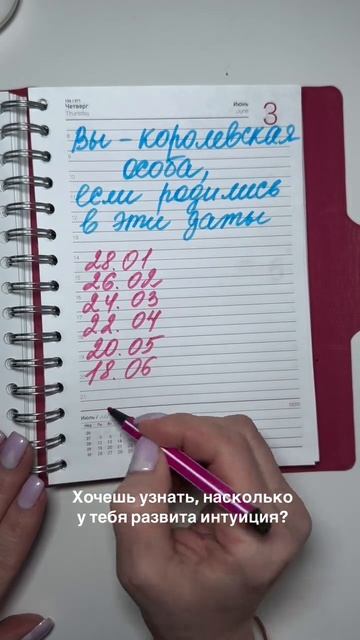 Четверг
Thursday
Июнь
June
3
Вы - королевская
особа,
если родились
в эти даты
28.01
26.02
24.03
22.04
20.05
18.06
Хочешь узнать, насколько
у тебя развита интуиция?